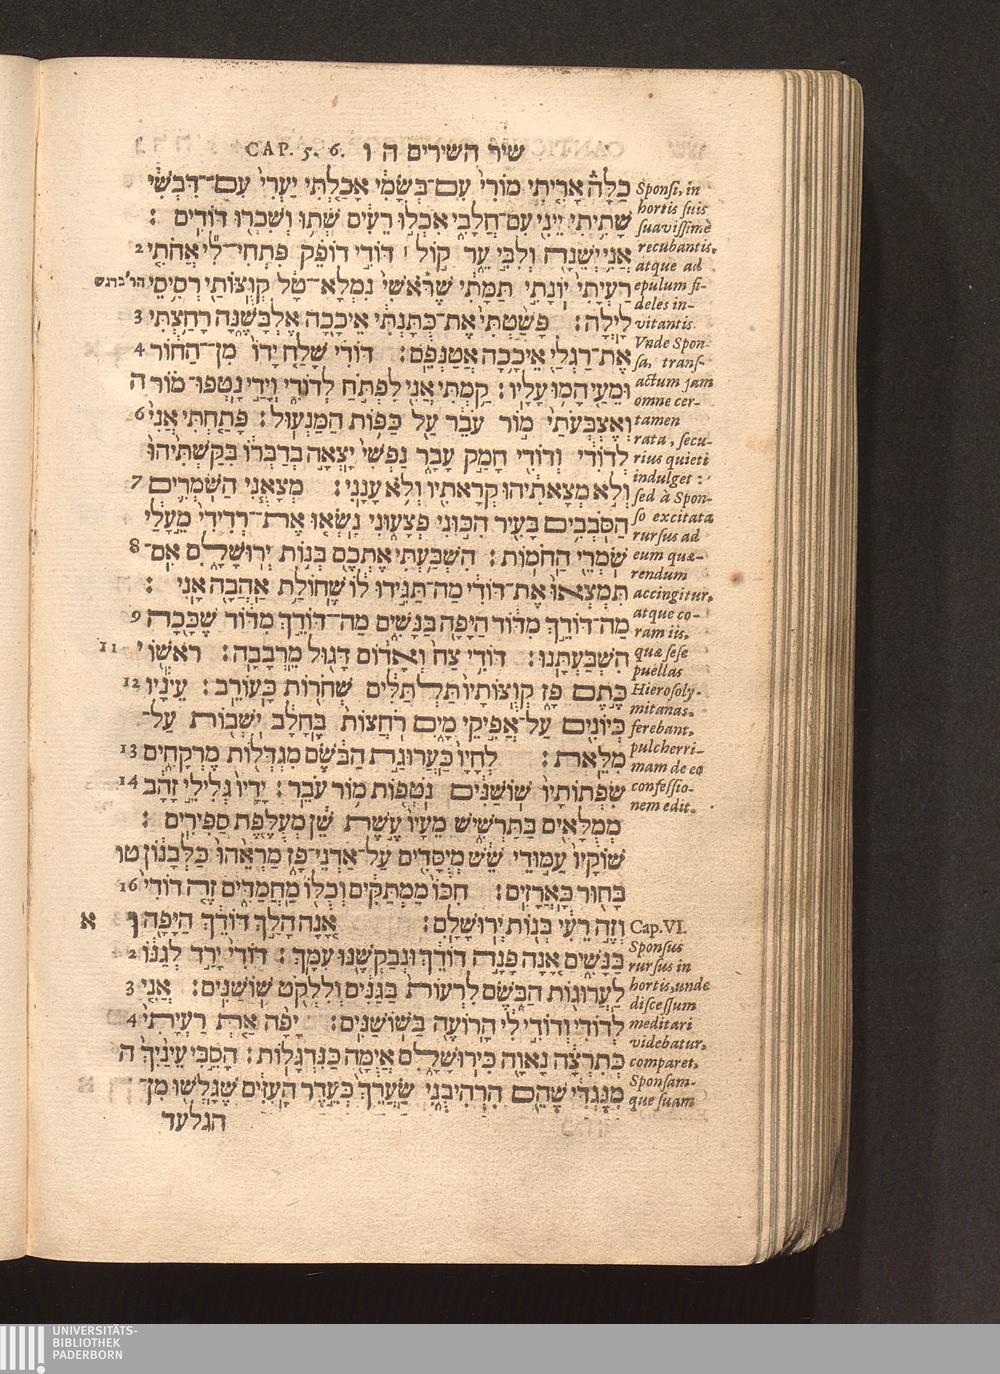 שיר השירים ה ו CAP. 5. 6.
כַּלָּה֒ אָרִ֤יתִי מוֹרִי֙ עִם־בְּשָׂמִ֔י אָכַ֤לְתִּי יַעְרִי֙ עִם־דִּבְשִׁ֔י
שָׁתִ֥יתִי יֵינִ֖י עִם־חֲלָבִ֑י אִכְל֣וּ רֵעִ֔ים שְׁת֥וּ וְשִׁכְר֖וּ דּוֹדִֽים :
אֲנִ֥י יְשֵׁנָ֖ה וְלִבִּ֣י עֵ֑ר ק֣וֹל ׀ דּוֹדִ֣י דוֹפֵ֗ק פִּתְחִי־לִ֞י אֲחֹתִ֤י 2
רַעְיָתִי֙ יוֹנָתִ֣י תַמָּתִ֔י שֶׁרֹּאשִׁי֙ נִמְלָא־טָ֔ל קְוֻּצּוֹתַ֖י רְסִ֥יסֵי
לָֽיְלָה׃ פָּשַׁ֙טְתִּי֙ אֶת־כֻּתָּנְתִּ֔י אֵיכָ֖כָה אֶלְבָּשֶׁ֑נָּה רָחַ֥צְתִּי 3
אֶת־רַגְלַ֖י אֵיכָ֥כָה אֲטַנְּפֵֽם׃ דּוֹדִ֗י שָׁלַ֤ח יָדוֹ֙ מִן־הַחֹ֔ור 4
וּמֵעַ֖י הָמ֥וּ עָלָֽיו׃ קַ֥מְתִּֽי אֲנִ֖י לִפְתֹּ֣חַ לְדוֹדִ֑י וְיָדַ֣י נָֽטְפוּ־מ֗וֹר ה
וְאֶצְבְּעֹתַי֙ מ֣וֹר עֹבֵ֔ר עַ֖ל כַּפּ֥וֹת הַמַּנְעֽוּל׃ פָּתַ֤חְתִּֽי אֲנִי֙ 6
לְדוֹדִ֔י וְדוֹדִ֖י חָמַ֣ק עָבָ֑ר נַפְשִׁי֙ יָֽצְאָ֣ה בְדַבְּר֔וֹ בִּקַּשְׁתִּ֙יהוּ֙
וְלֹ֣א מְצָאתִ֔יהוּ קְרָאתִ֖יו וְלֹ֥א עָנָֽנִי׃ מְצָאֻ֧נִי הַשֹּׁמְרִ֛ים 7
הַסֹּבְבִ֥ים בָּעִ֖יר הִכּ֣וּנִי פְצָע֑וּנִי נָשְׂא֤וּ אֶת־רְדִידִי֙ מֵֽעָלַ֔י
שֹׁמְרֵ֖י הַחֹמֽוֹת׃ הִשְׁבַּ֥עְתִּי אֶתְכֶ֖ם בְּנ֣וֹת יְרוּשָׁלִָ֑ם אִֽם־ 8
תִּמְצְאוּ֙ אֶת־דּוֹדִ֔י מַה־תַּגִּ֣ידוּ ל֔וֹ שֶׁחוֹלַ֥ת אַהֲבָ֖ה אָֽנִי :
מַה־דּוֹדֵ֣ךְ מִדּ֔וֹד הַיָּפָ֖ה בַּנָּשִׁ֑ים מַה־דּוֹדֵ֣ךְ מִדּ֔וֹד שֶׁכָּ֖כָה 9
הִשְׁבַּעְתָּֽנוּ׃ דּוֹדִ֥י צַח֙ וְאָד֔וֹם דָּג֖וּל מֵרְבָבָֽה׃ רֹאשׁ֖וֹ י 11
כֶּ֣תֶם פָּ֑ז קְוֻּצּוֹתָיו֙ תַּלְתַּלִּ֔ים שְׁחֹר֖וֹת כָּעוֹרֵֽב׃ עֵינָ֕יו 12
כְּיוֹנִ֖ים עַל־אֲפִ֣יקֵי מָ֑יִם רֹֽחֲצוֹת֙ בֶּֽחָלָ֔ב יֹשְׁב֖וֹת עַל־
מִלֵּֽאת׃ לְחָיָו֙ כַּעֲרוּגַ֣ת הַבֹּ֔שֶׂם מִגְדְּל֖וֹת מֶרְקָחִ֑ים 13
שִׂפְתוֹתָיו֙ שֽׁוֹשַׁנִּ֔ים נֹטְפ֖וֹת מ֥וֹר עֹבֵֽר׃ יָדָיו֙ גְּלִילֵ֣י זָהָ֔ב 14
מְמֻלָּאִ֖ים בַּתַּרְשִׁ֑ישׁ מֵעָיו֙ עֶ֣שֶׁת שֵׁ֔ן מְעֻלֶּ֖פֶת סַפִּירִֽים :
שׁוֹקָיו֙ עַמּ֣וּדֵי שֵׁ֔שׁ מְיֻסָּדִ֖ים עַל־אַדְנֵי־פָ֑ז מַרְאֵ֙הוּ֙ כַּלְּבָנ֔וֹן טו
בָּח֖וּר כָּאֲרָזִֽים׃ חִכּוֹ֙ מַֽמְתַקִּ֔ים וְכֻלּ֖וֹ מַחֲמַדִּ֑ים זֶ֤ה דוֹדִי֙ 16
וְזֶ֣ה רֵעִ֔י בְּנ֖וֹת יְרוּשָׁלִָֽם׃ אָ֚נָה הָלַ֣ךְ דּוֹדֵ֔ךְ הַיָּפָ֖ה ו א
בַּנָּשִׁ֑ים אָ֚נָה פָּנָ֣ה דוֹדֵ֔ךְ וּנְבַקְשֶׁ֖נּוּ עִמָּֽךְ׃ דּוֹדִי֙ יָרַ֣ד לְגַנּ֔וֹ 2
לַעֲרוּג֖וֹת הַבֹּ֑שֶׂם לִרְעוֹת֙ בַּגַּנִּ֔ים וְלִלְקֹ֖ט שֽׁוֹשַׁנִּֽים׃ אֲנִ֤י 3
לְדוֹדִי֙ וְדוֹדִ֣י לִ֔י הָרוֹעֶ֖ה בַּשּׁוֹשַׁנִּֽים׃ יָפָ֨ה אַ֤תְּ רַעְיָתִי֙ 4
כְּתִרְצָ֔ה נָאוָ֖ה כִּירוּשָׁלִָ֑ם אֲיֻמָּ֖ה כַּנִּדְגָּלֽוֹת׃ הָסֵ֤בִּי עֵינַ֙יִךְ֙ ה
מִנֶּגְדִּ֔י שֶׁהֵ֖ם הִרְהִיבֻ֑נִי שַׂעְרֵךְ֙ כְּעֵ֣דֶר הָֽעִזִּ֔ים שֶׁגָּלְשׁ֖וּ מִן־
הגלעד
Sponsi, in
hortis suis
suavissimè
recubantis,
atque ad
epulum fi-
deles in-
vitantis.
Vnde Spon-
sa, trans-
actum jam
omne cer-
tamen
rata, secu-
rius quieti
indulget :
sed à Spon-
so excitata
rursus ad
eum quæ-
rendum
accingitur,
atque co-
ram iis,
quæ sese
puellas
Hierosoly-
mitanas
ferebant,
pulcherri-
mam de eo
confessio-
nem edit.
Cap. VI.
Sponsus
rursus in
hortis, unde
discessum
meditari
videbatur,
comparet,
Sponsam-
que suam
UNIVERSITÄTS-
BIBLIOTHEK
PADERBORN